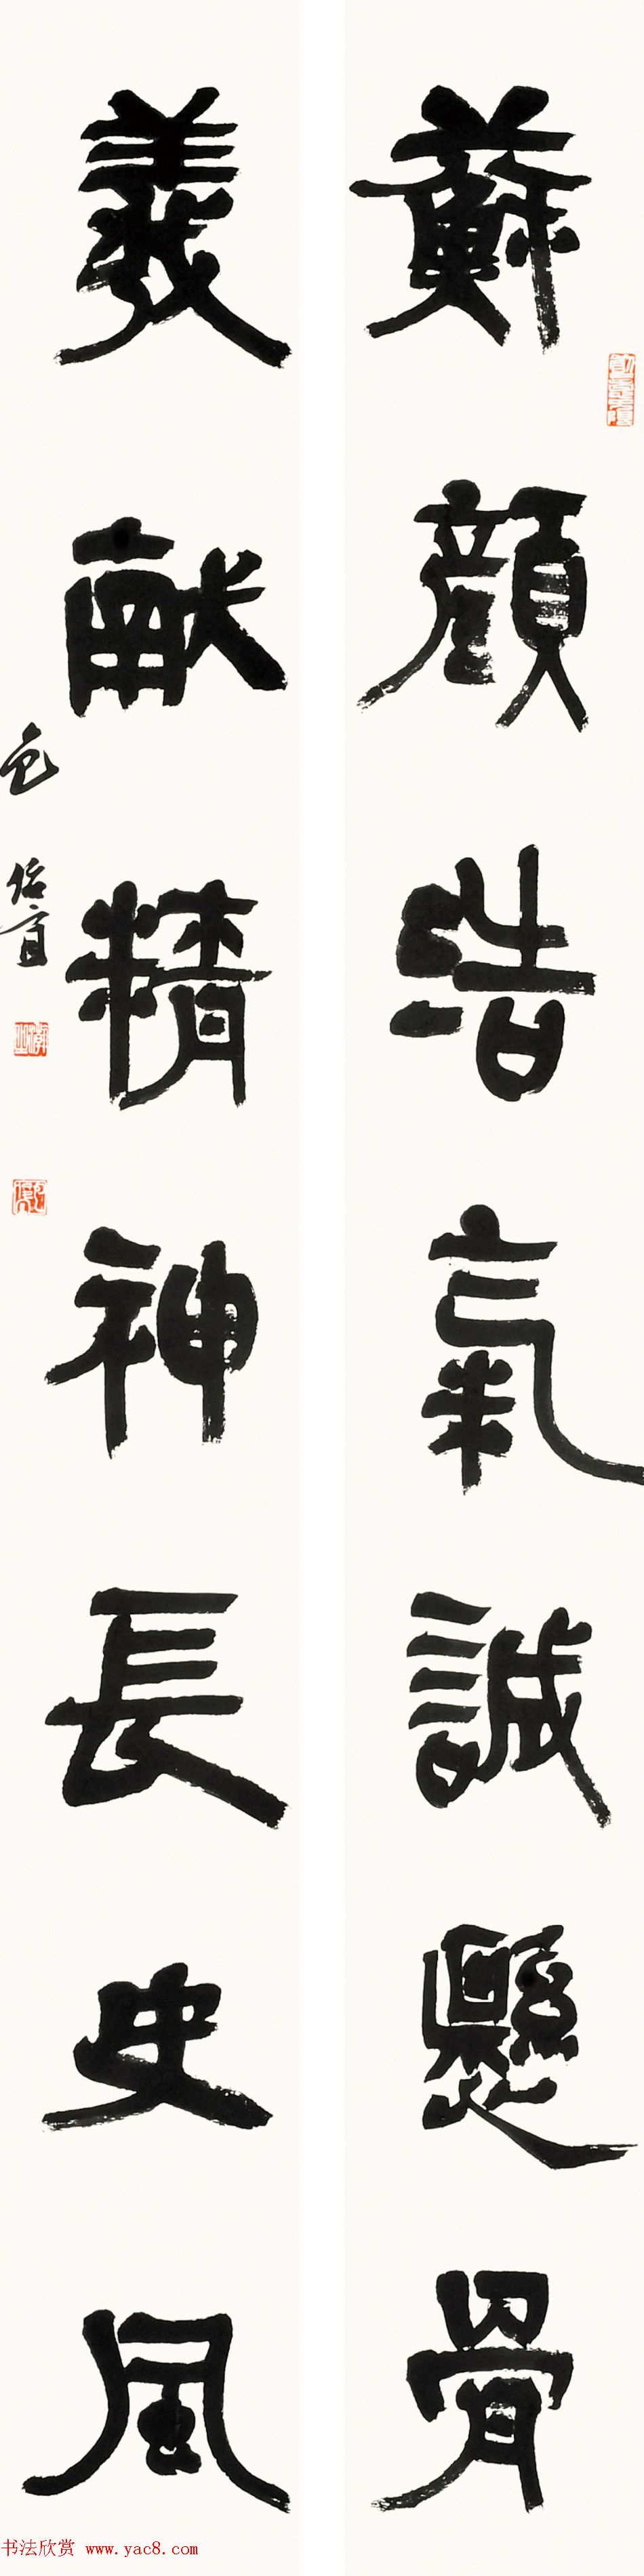 蘇顏浩氣誠懸骨
羲獻精神長史風
书法欣赏 www.yac8.com